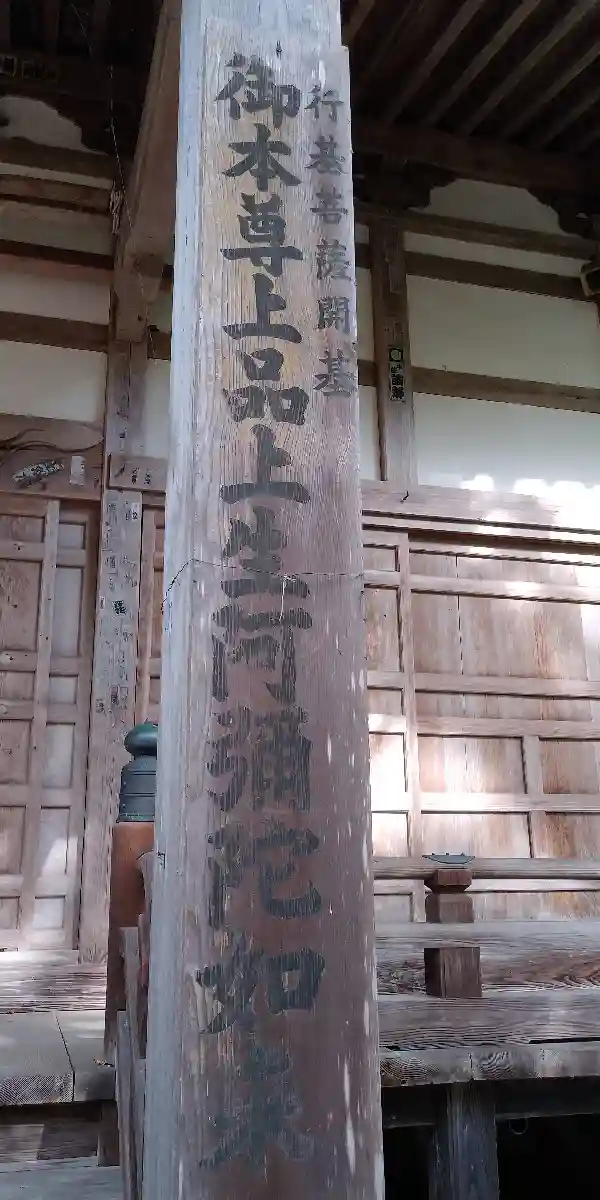 行基菩薩開基
御本尊上品上生阿彌陀如来